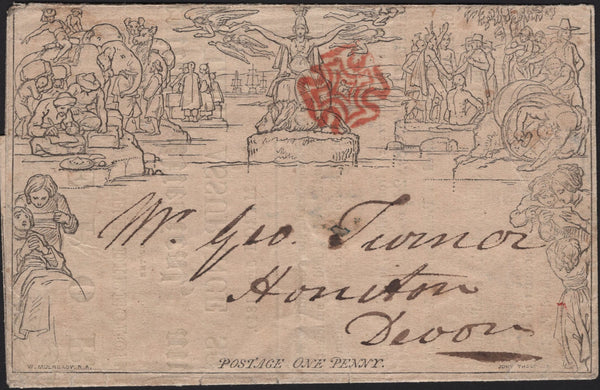 Mr. Geo. Turner
Honiton
Devon
POSTAGE ONE PENNY.
W. MULREADY. R.A.
JOHN THOMPSON